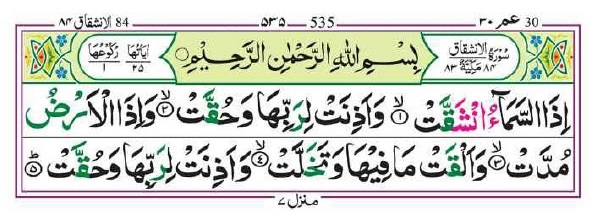 الانشقاق ٨٤ 84 ۵۳۵ 535 عم ٣٠ 30
سورة الانشقاق ٨٤ مكية ٨٣ بِسْمِ اللهِ الرَّحْمٰنِ الرَّحِيْمِ اٰیَاتُهَا ٢٥ رُكُوْعُهَا ١
اِذَا السَّمَآءُ انْشَقَّتْ ۙ﴿۱﴾ وَاَذِنَتْ لِرَبِّهَا وَحُقَّتْ ۙ﴿۲﴾ وَاِذَا الْاَرْضُ
مُدَّتْ ۙ﴿۳﴾ وَاَلْقَتْ مَا فِيْهَا وَتَخَلَّتْ ۙ﴿۴﴾ وَاَذِنَتْ لِرَبِّهَا وَحُقَّتْ ؕ﴿۵﴾
منزل ٧